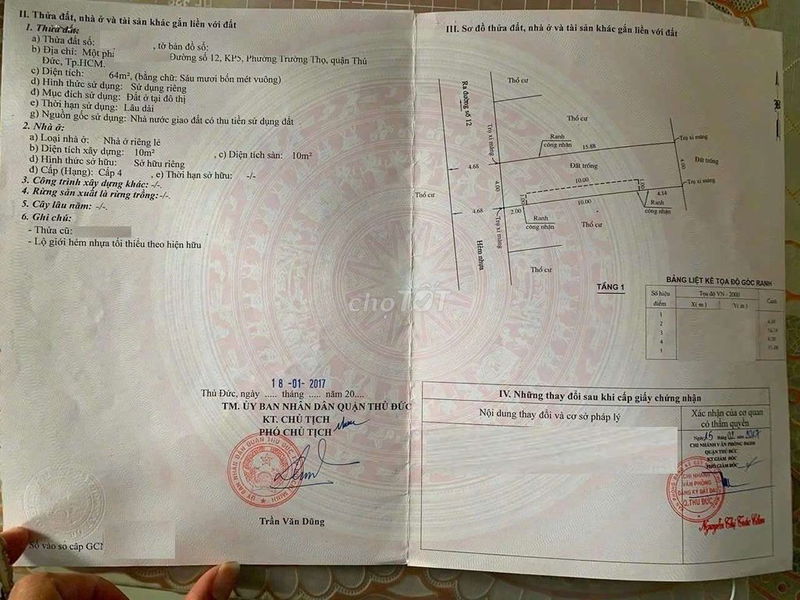 II. Thửa đất, nhà ở và tài sản khác gắn liền với đất
1. Thửa đất:
a) Thửa đất số: , tờ bản đồ số:
b) Địa chỉ: Một phần Đường số 12, KP5, Phường Trường Thọ, quận Thủ
Đức, Tp.HCM.
c) Diện tích: 64m², (bằng chữ: Sáu mươi bốn mét vuông)
d) Hình thức sử dụng: Sử dụng riêng
đ) Mục đích sử dụng: Đất ở tại đô thị
e) Thời hạn sử dụng: Lâu dài
g) Nguồn gốc sử dụng: Nhà nước giao đất có thu tiền sử dụng đất
2. Nhà ở:
a) Loại nhà ở: Nhà ở riêng lẻ
b) Diện tích xây dựng: 10m² , c) Diện tích sàn: 10m²
d) Hình thức sở hữu: Sở hữu riêng
đ) Cấp (Hạng): Cấp 4 , e) Thời hạn sở hữu: -/-
3. Công trình xây dựng khác: -/-.
4. Rừng sản xuất là rừng trồng:-/-.
5. Cây lâu năm: -/-.
6. Ghi chú:
- Thửa cũ:
- Lộ giới hẻm nhựa tối thiểu theo hiện hữu
18 -01- 2017
Thủ Đức, ngày ..... tháng ..... năm 20....
TM. ỦY BAN NHÂN DÂN QUẬN THỦ ĐỨC
KT. CHỦ TỊCH
PHÓ CHỦ TỊCH
Trần Văn Dũng
Số vào sổ cấp GCN
III. Sơ đồ thửa đất, nhà ở và tài sản khác gắn liền với đất
Thổ cư
Ra đường số 12
Thổ cư
Ranh
công nhận
15.88
Trụ xi măng
Trụ xi măng
4.68
Đất trống
4.00
Đất trống
Thổ cư
4.00
10.00
1.00
1.00
Trụ xi măng
4.14
4.68
2.00
10.00
Ranh
công nhận
Ranh
công nhận
Trụ xi măng
Thổ cư
Hẻm nhựa
Thổ cư
TẦNG 1
BẢNG LIỆT KÊ TỌA ĐỘ GÓC RANH
Số hiệu
điểm
Tọa độ VN - 2000
X( m )
Y( m )
Cạnh
1
2
3
4
1
IV. Những thay đổi sau khi cấp giấy chứng nhận
Nội dung thay đổi và cơ sở pháp lý
Xác nhận của cơ quan
có thẩm quyền
CHI NHÁNH VĂN PHÒNG ĐKĐĐ
QUẬN THỦ ĐỨC
KT GIÁM ĐỐC
PHÓ GIÁM ĐỐC
CHI NHÁNH
VĂN PHÒNG
ĐĂNG KÝ ĐẤT ĐAI
Q.THỦ ĐỨC
choTỐT